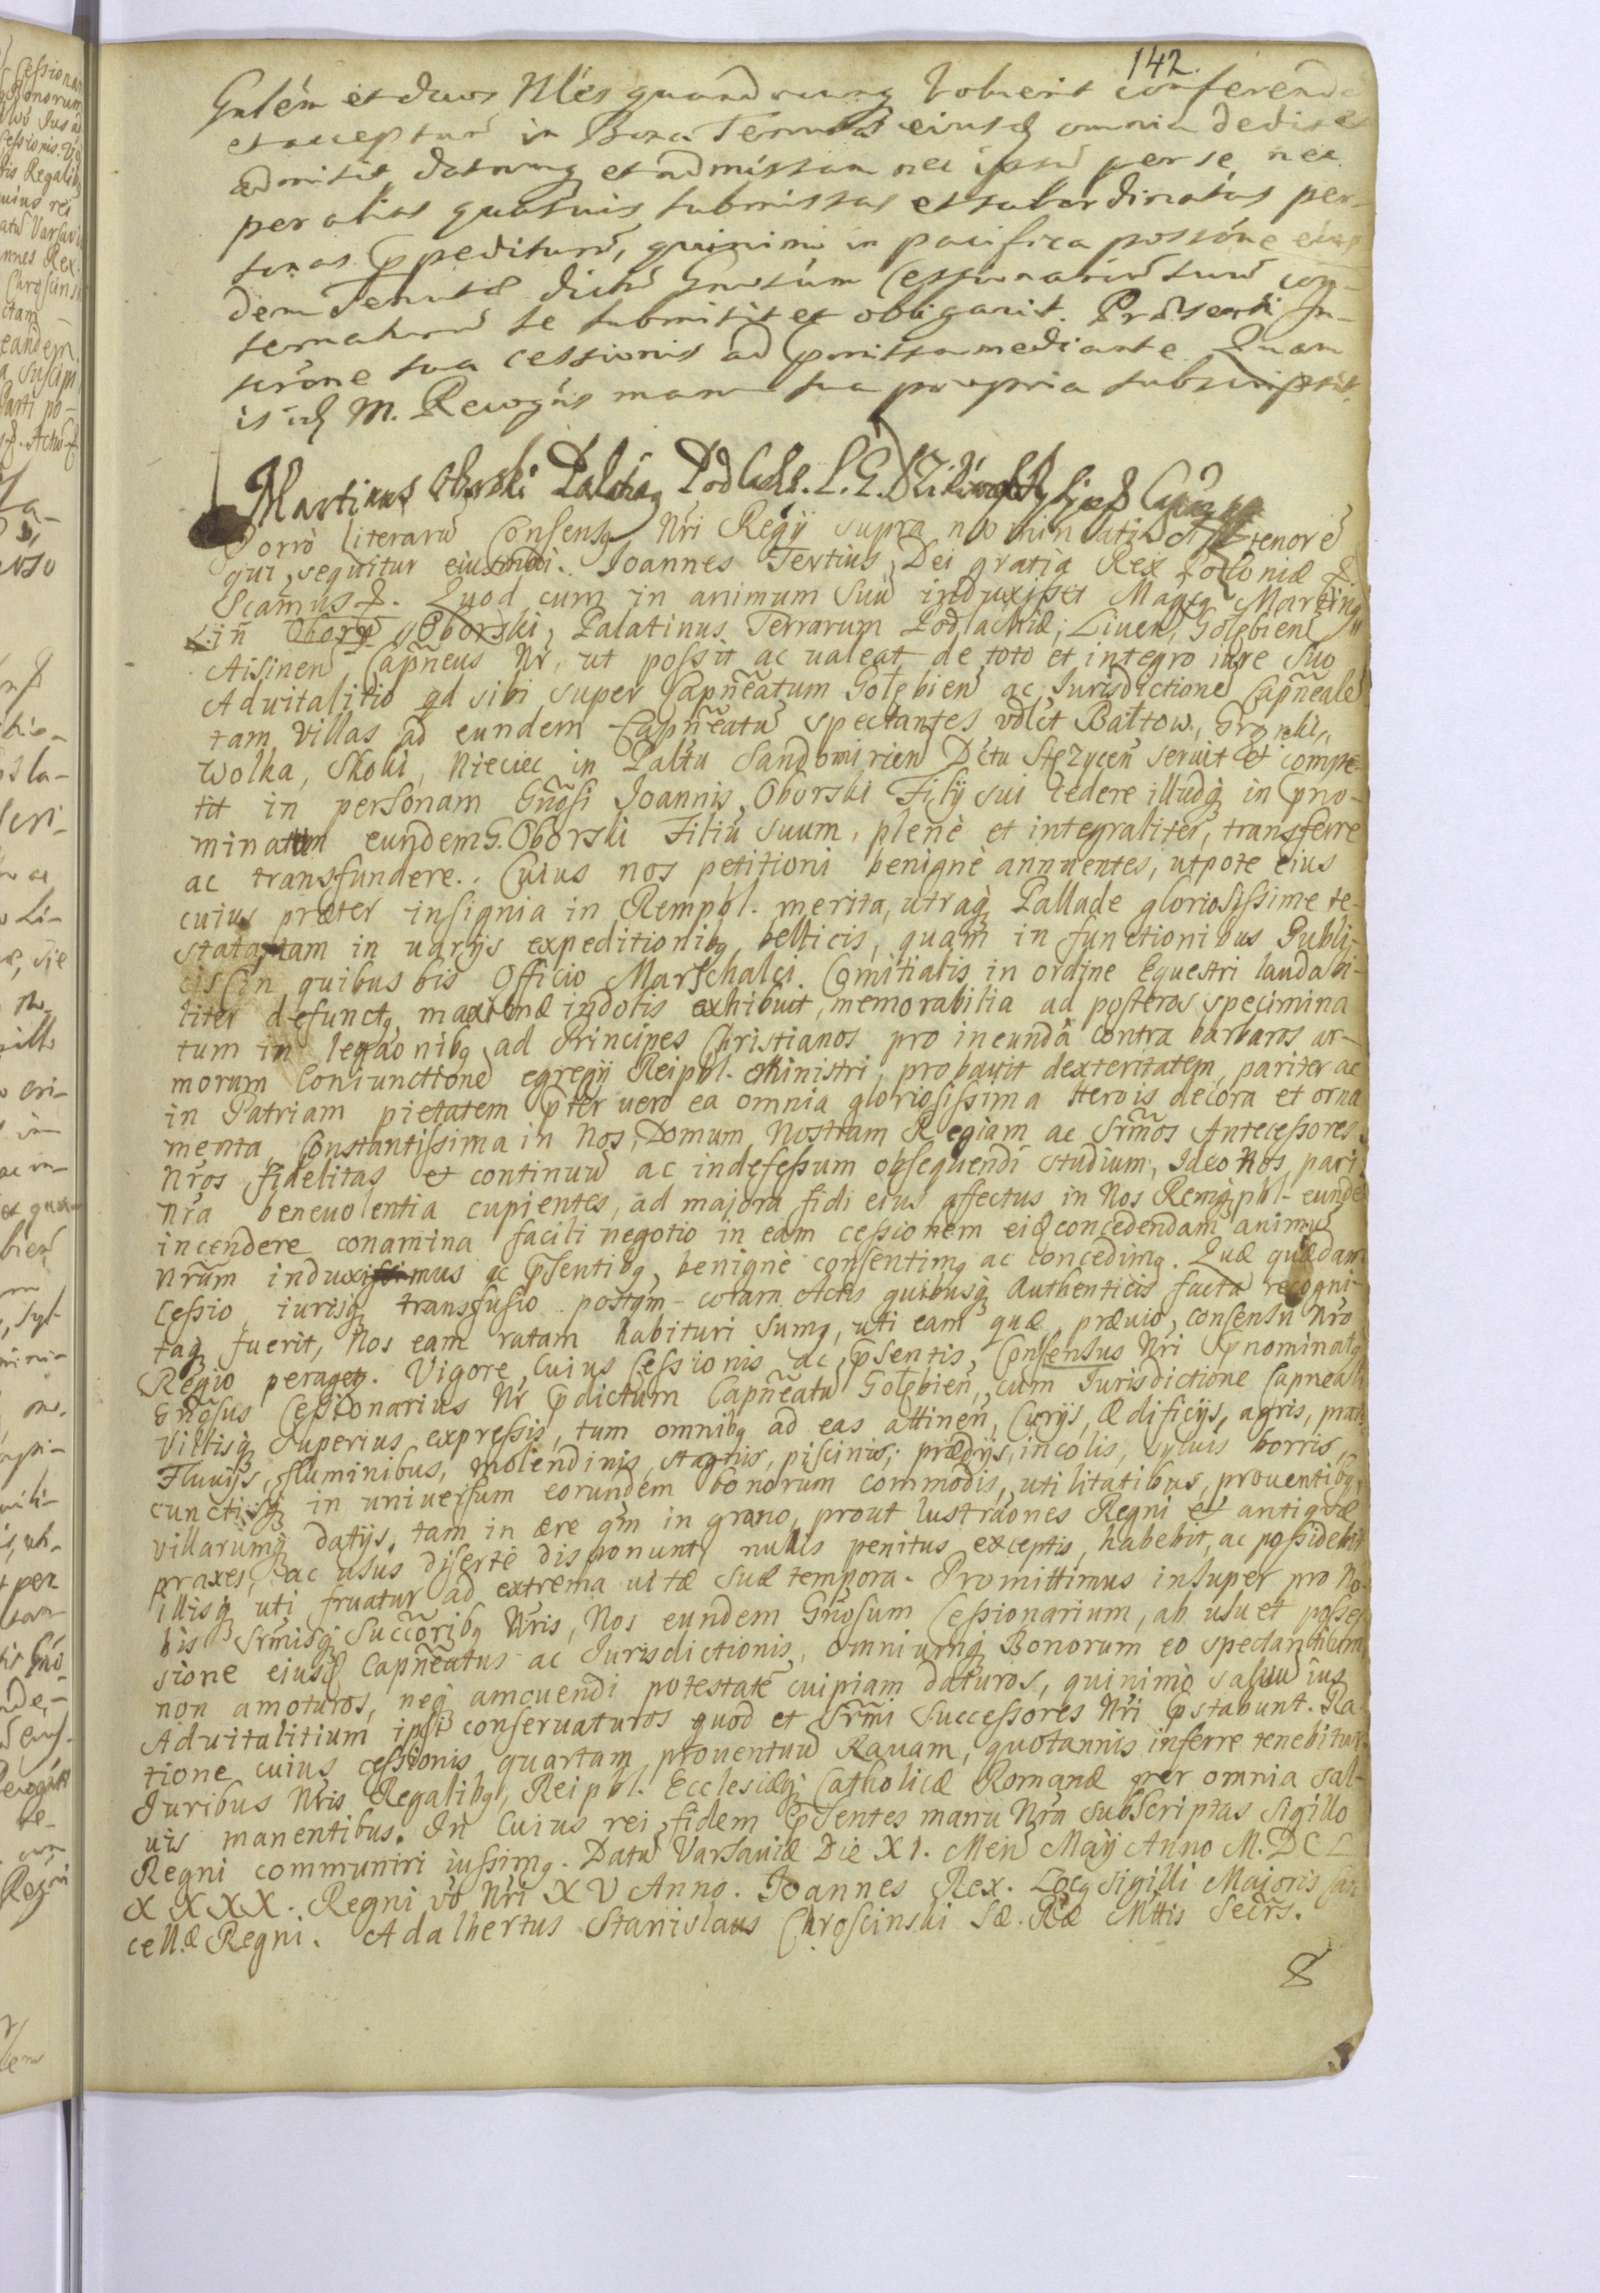 142.
Gnlém et duos Nles quandocunq voluerit conferendo
et accepturū in Bona Tenutæ eiusd omnia dedit et
admisit datamq et admissam nec ipsū per se, nec
per alias quasuis submissas et subordinatas per-
sonas expediturū, quinimo in pacifica possióne eius
dem Tenutæ dictū Gnosum Cessionariū suū con-
seruaturū se submisit et obligauit. Præsenti In-
scrōne sua cessionis ad præmissa mediante. Quam
is id M. Recogñs manu sua propria subscripsit.
Martinus Oborski Palatinq Podlach. L. G.
Porrò literarū Consensq Nri Regij supra nominati tenor ē
qui sequitur eiusmdi. Joannes Tertius Dei gratia Rex Poloniæ &
Scamus &. Quod cum in animum Suū induxisset Magcq Martinq
in Obory Oborski, Palatinus Terrarum Podlachiæ, Liuen, Golębien
Aisinen Capneus Nr, ut possit ac ualeat de toto et integro iure Suo
Aduitalitio qd sibi super Capneatum Golębien ac Jurisdictionē Capnealē
tam Villas ad eundem Capneatū spectantes vdlct Bałtow, Gronki,
Wolka, Skoki, Nieciec in Paltu Sandomirien Dctu Stęzycen seruit et compe-
tit in personam Gnosi Joannis Oborski Filij sui cedere illudq in præno-
minatum eundem G. Oborski Filiū suum, plenè et integraliter, transferre
ac transfundere. Cuius nos petitioni benignè annuentes, utpote eius
cuius præter insignia in Rempbl. merita, utraq Pallade gloriosissime te-
stata, tam in uarijs expeditionibq bellicis, quam in functionibus Publi-
cis (in quibus bis Officio Marschalci Comitialis in ordine Equestri laudabi-
liter defunctq maximæ indolis exhibuit, memorabilia ad posteros specimina
tum in legaonibq ad Principes Christianos pro ineundâ contra barbaros ar-
morum Coniunctionē egregij Reipbl. Ministri, probauit dexteritatem, pariter ac
in Patriam pietatem præter vero ea omnia gloriosissima Herois decora et orna
menta, Constantissima in Nos, Domum Nostram Regiam ac Srmos Antecessores
Nros fidelitas et continuū ac indefessum obsequendi studium, Ideo Nos pari
Nra beneuolentia cupientes, ad majora fidi eius affectus in Nos Remq pbl. eundē
incendere conamina facili negotio in eam cessionem eiq concedendam animū
Nrum induximus ac præsentibq benignè consentimq ac concedimq. Quæ quædam
Cessio, iurisq transfusio postqm coram Actis quibusq Authenticis facta recogni-
taq fuerit, Nos eam ratam habituri Sumq, uti eam quæ, præuio, consensu Nro
Regio peragetq. Vigore, Cuius Cessionis ac præsentis, Consensus Nri prænominatq
Gnosus Cessionarius Nr prædictum Capneatū Golębien, cum Iurisdictione Capneali
Villisq Superius expressis, tum omnibq ad eas attinen, Curijs, Ædificijs, agris, pratis
Fluuijs, fluminibus, molendinis, stagnis, piscinis, prædijs, incolis, syluis borris,
cunctisq in uniuersum eorundem bonorum commodis, utilitatibus, prouentibq,
villarumq datijs, tam in ære qm in grano, prout lustraones Regni et antiquæ
praxes, ac usus disertè disponunt, nullis penitus exceptis, habebit, ac possidebit
illisq uti fruatur ad extrema uitæ suæ tempora. Promittimus insuper pro No-
bis Srmisq Succoribq Nris, Nos eundem Gnosum Cessionarium, ab usu et posses
sione eiusd Capneatus ac Jurisdictionis, omniumq Bonorum eo spectantium
non amoturos, neq amouendi potestatē cuipiam daturos, quinimò saluū ius
Aduitalitium ipsi conseruaturos quod et Srmi Successores Nri præstabunt. Ra-
tione cuius cessionis quartam prouentuū Rauam, quotannis inferre tenebitur
Juribus Nris Regalibq, Reipbl. Ecclesiæq Catholicæ Romanæ per omnia sal-
uis manentibus. In Cuius rei fidem præsentes manu Nra subscriptas Sigillo
Regni communiri iussimq. Datū Varsauiæ Die XI. Men Maij Anno M.DCL
XXXX. Regni vo Nri XV Anno. Joannes Rex. Locq Sigilli Majoris Can
cellæ Regni. Adalbertus Stanislaus Chroscinski Sæ. Ræ Mttis Secrs.